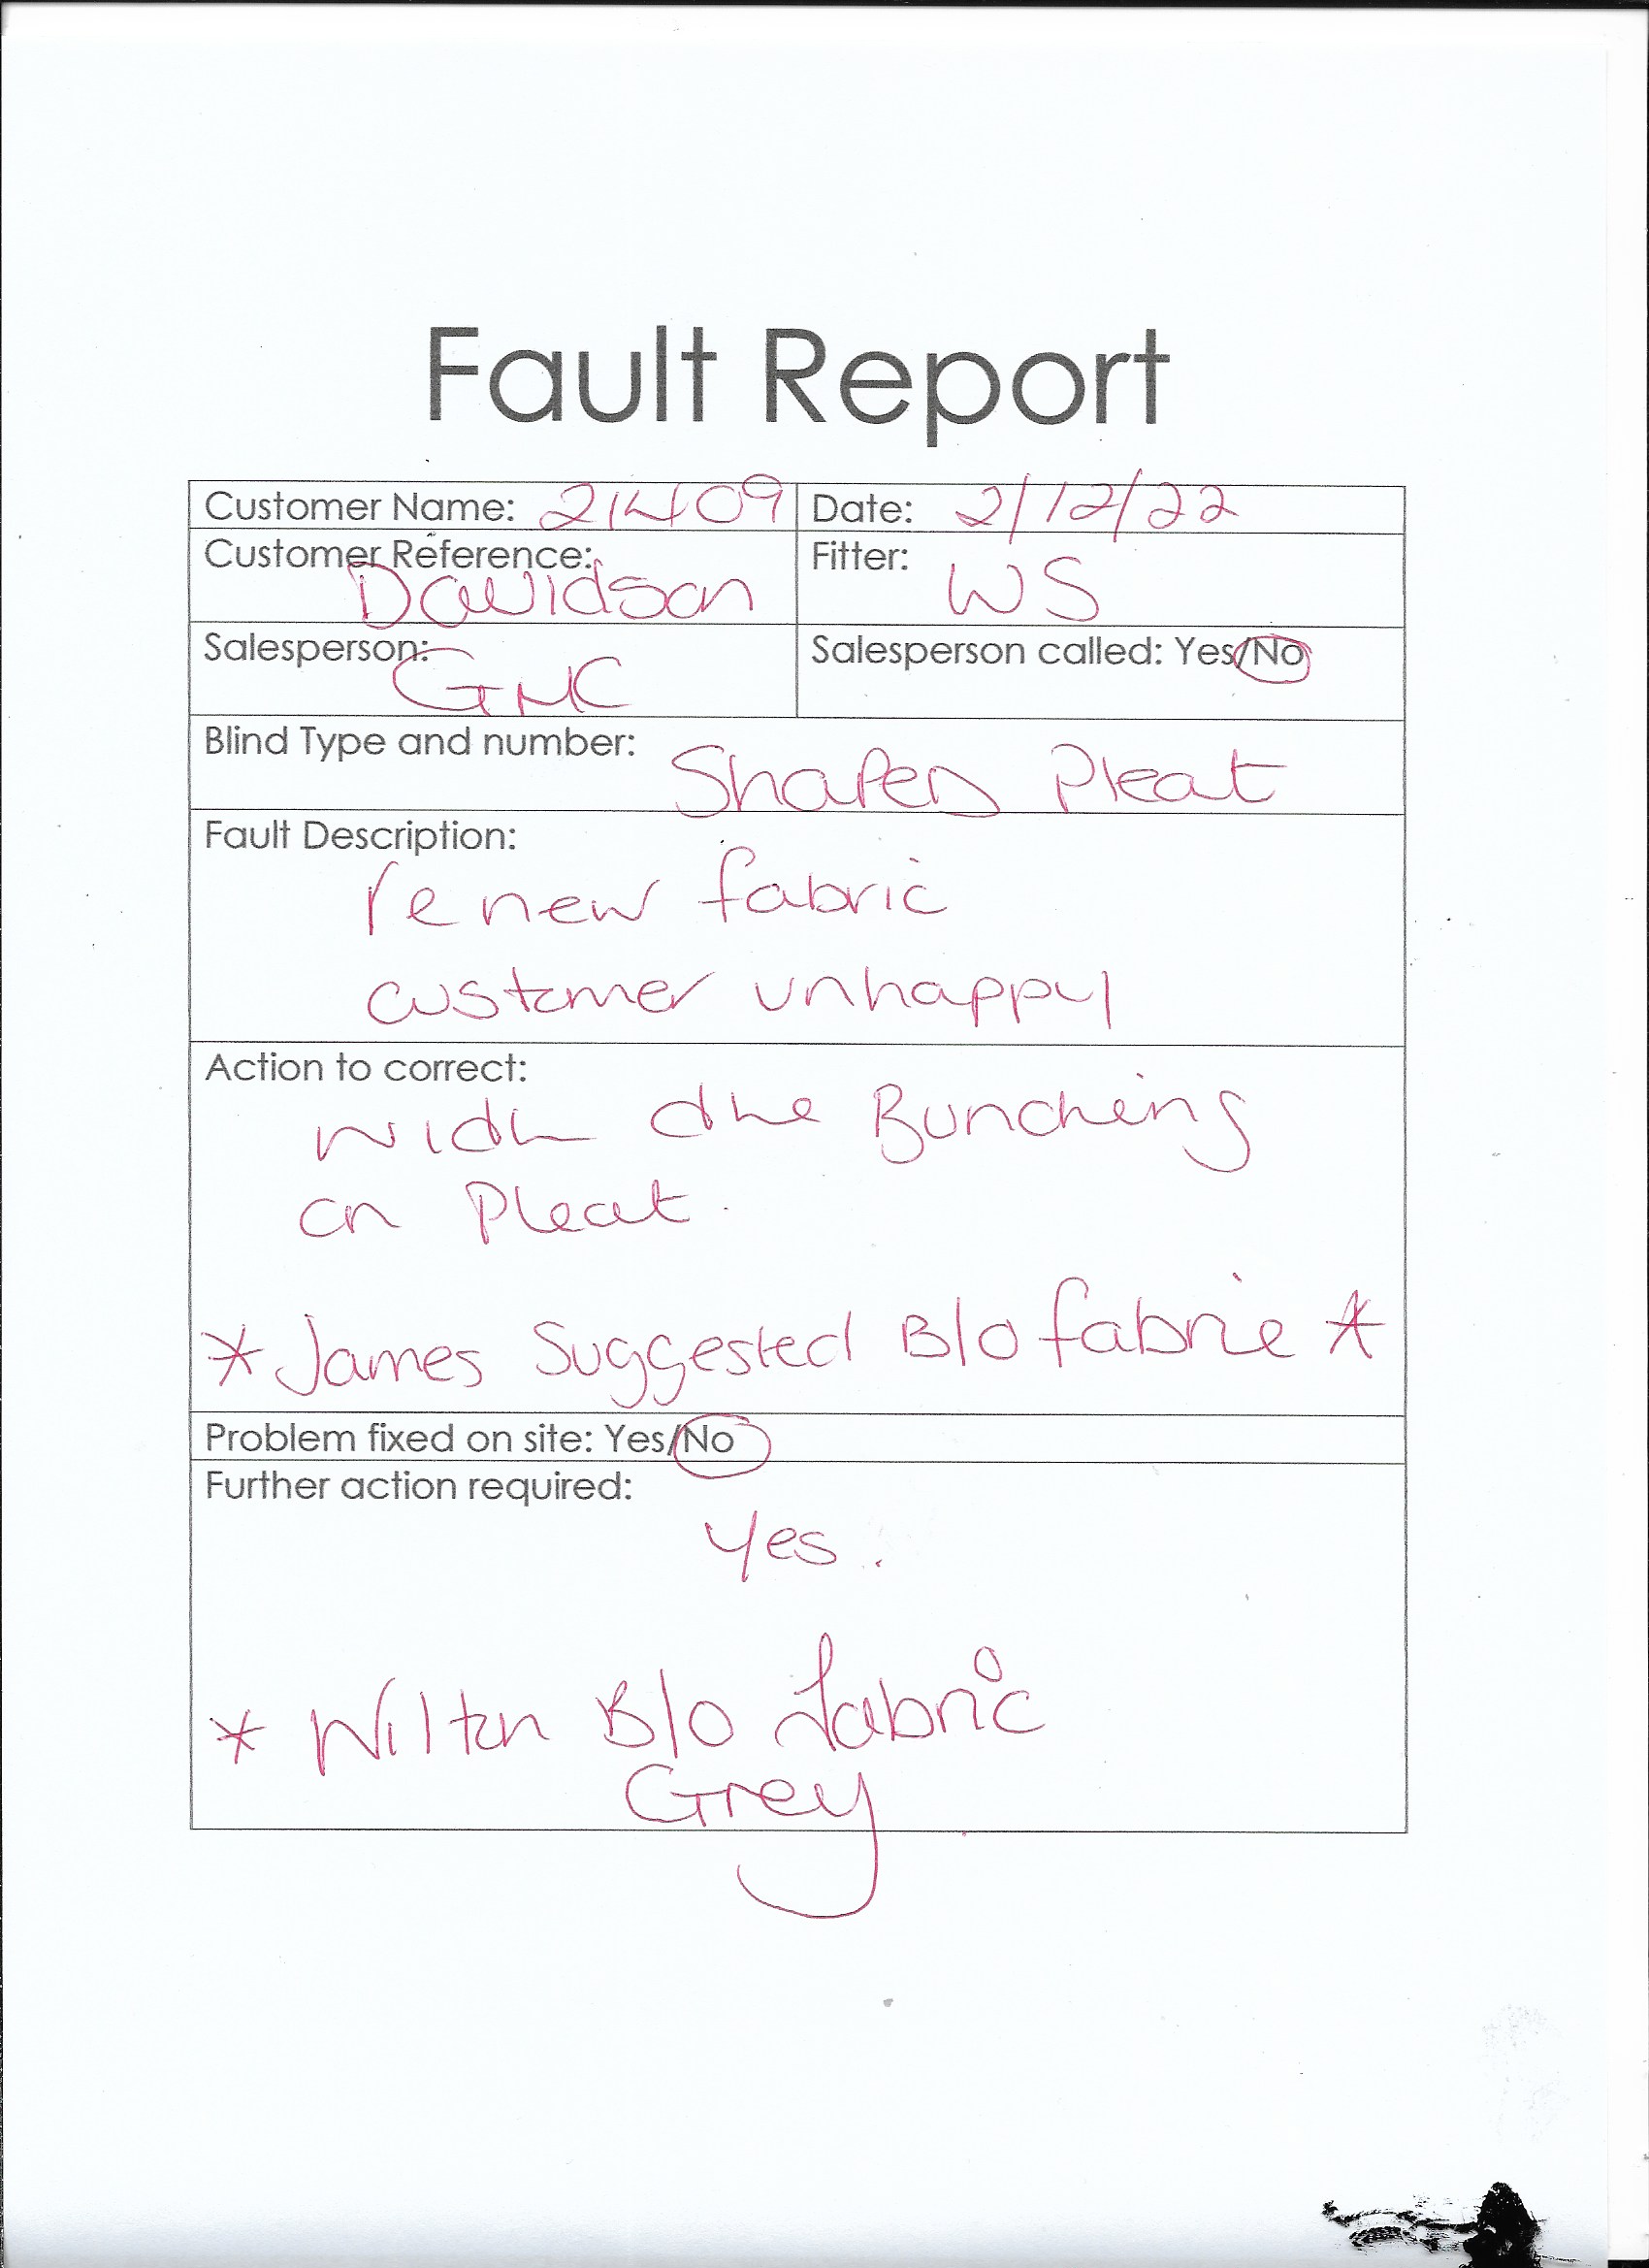 Fault Report
Customer Name: 21409 Date: 2/12/22
Customer Reference: Davidson Fitter: WS
Salesperson: GMC Salesperson called: Yes/No
Blind Type and number: Shaped Pleat
Fault Description:
renew fabric
customer unhappy
Action to correct:
with the Bunching
on Pleat.
* James Suggested B/O fabric *
Problem fixed on site: Yes/No
Further action required:
yes.
* Wilton B/O fabric
Grey